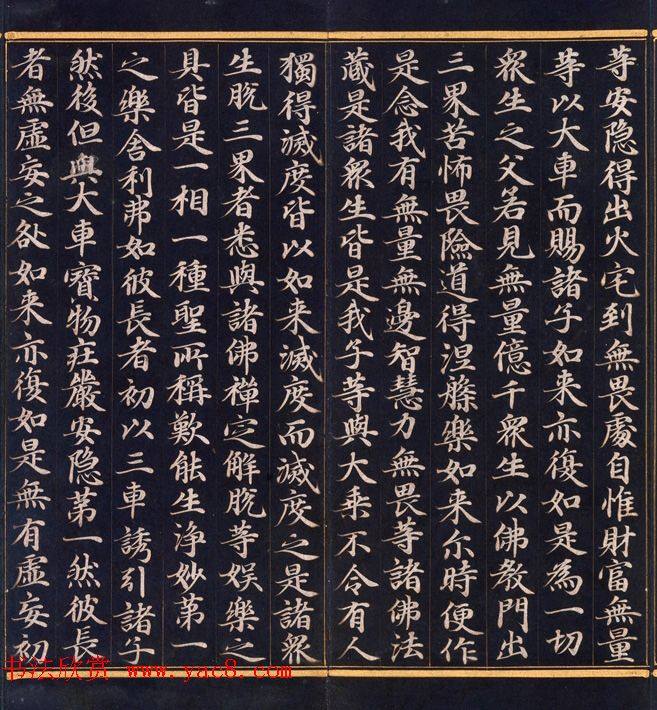 等安隱得出火宅到無畏處自惟財富無量
等以大車而賜諸子如来亦復如是為一切
衆生之父若見無量億千衆生以佛教門出
三界苦怖畏險道得涅槃樂如来尓時便作
是念我有無量無邊智慧力無畏等諸佛法
藏是諸衆生皆是我子等與大乗不令有人
獨得滅度皆以如来滅度而滅度之是諸衆
生脫三界者悉與諸佛禪定解脫等娛樂之
具皆是一相一種聖所稱歎能生淨妙第一
之樂舍利弗如彼長者初以三車誘引諸子
然後但大車寶物莊嚴安隱第一然彼長
者無虛妄之咎如来亦復如是無有虛妄初
书法欣赏 www.yac8.com